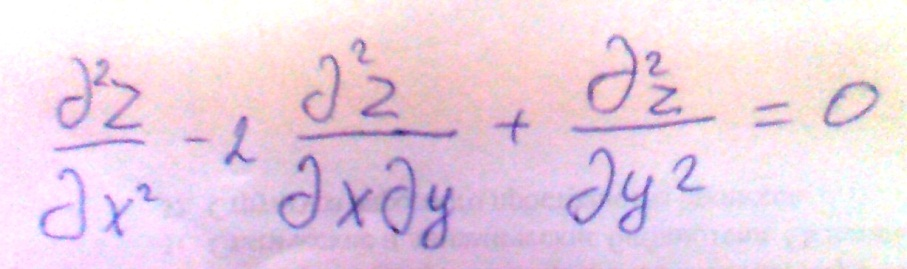 ∂²z/∂x² - 2 ∂²z/∂x∂y + ∂²z/∂y² = 0